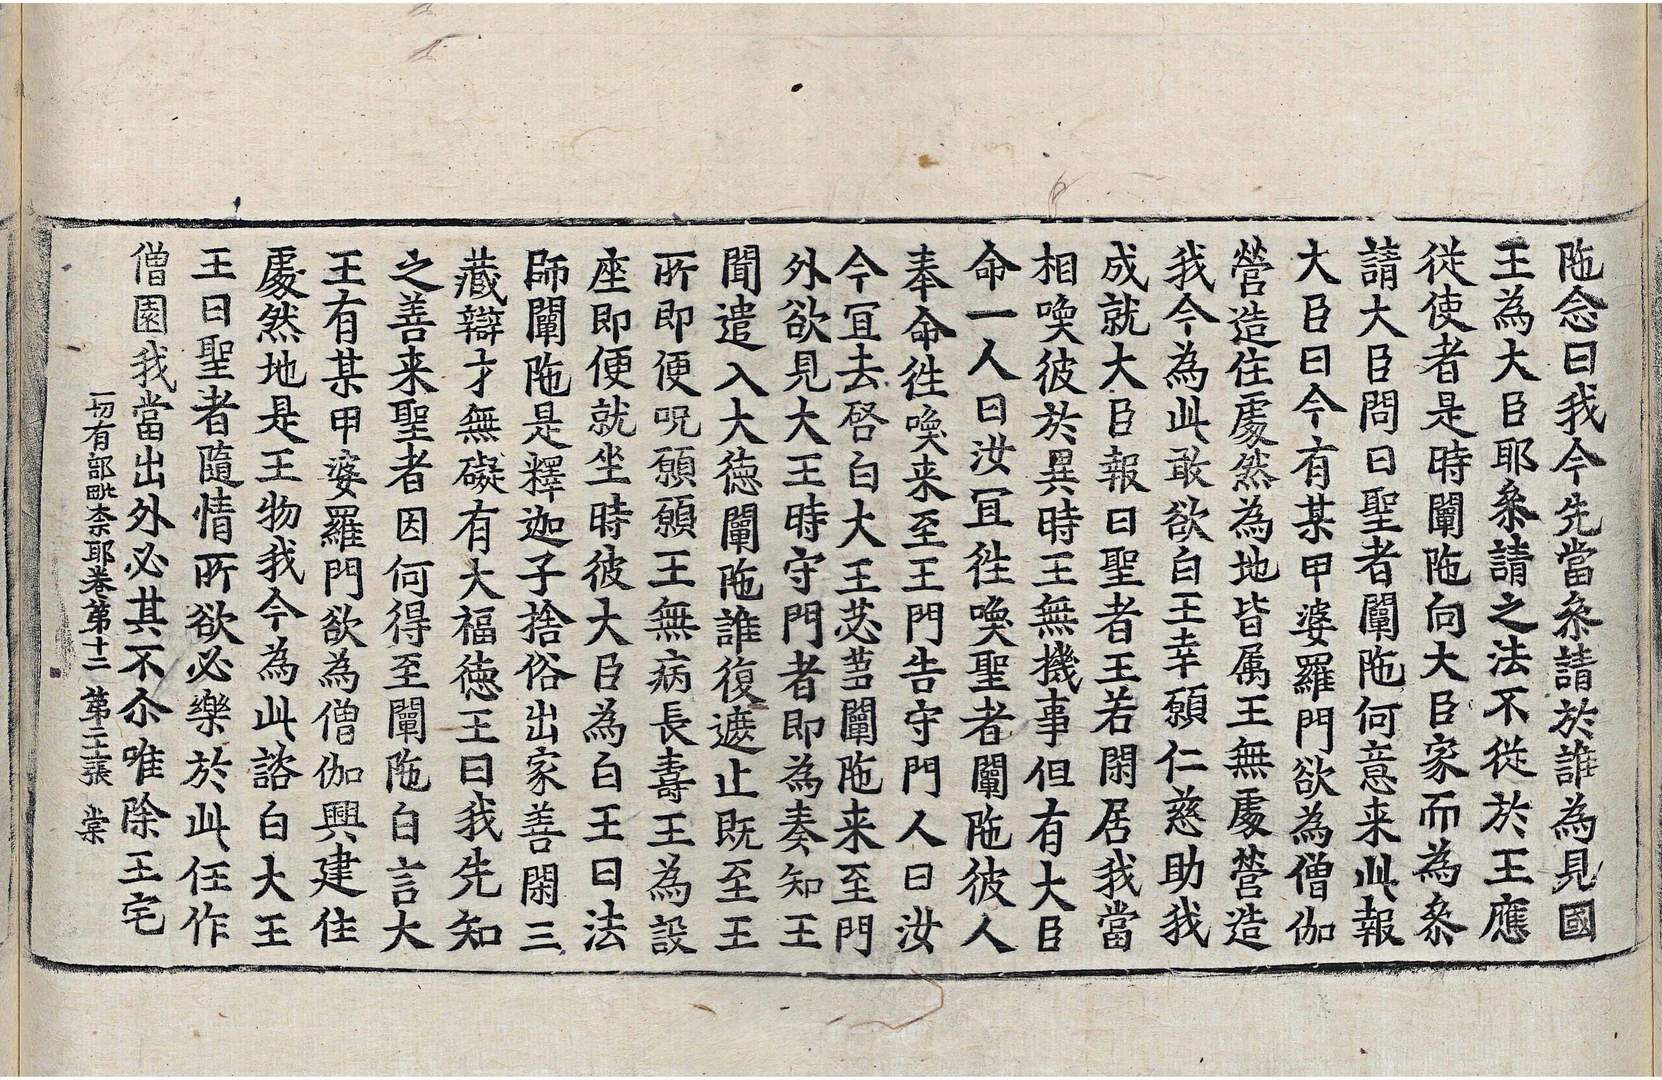 陁念曰我今先當叅請於誰為見國
王為大臣耶叅請之法不從於王應
從使者是時闡陁向大臣家而為叅
請大臣問曰聖者闡陁何意来此報
大臣曰今有某甲婆羅門欲為僧伽
營造住處然為地皆属王無處營造
我今為此敢欲白王幸願仁慈助我
成就大臣報曰聖者王若閑居我當
相喚彼於異時王無機事但有大臣
命一人曰汝冝往喚聖者闡陁彼人
奉命往喚来至王門告守門人曰汝
今冝去啓白大王苾芻闡陁来至門
外欲見大王時守門者即為奏知王
聞遣入大德闡陁誰復遮止既至王
所即便呪願願王無病長壽王為設
座即便就坐時彼大臣為白王曰法
師闡陁是釋迦子捨俗出家善閑三
藏辯才無礙有大福德王曰我先知
之善来聖者因何得至闡陁白言大
王有某甲婆羅門欲為僧伽興建住
處然地是王物我今為此諮白大王
王曰聖者隨情所欲必樂於此任作
僧園我當出外必其不尒唯除王宅
一切有部毗柰耶卷第十二 第二十張 棠